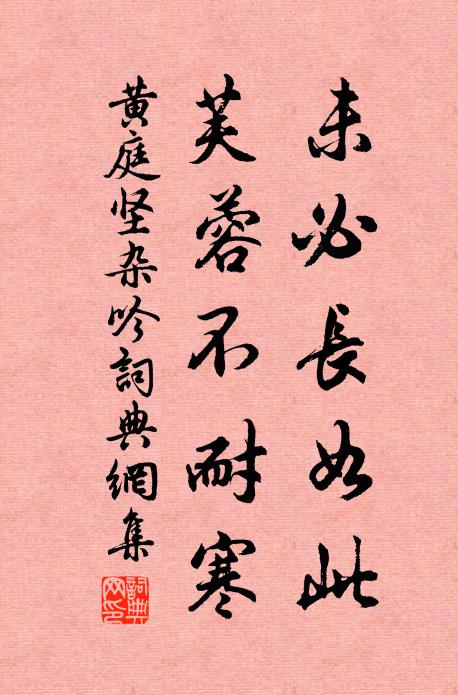 未必長如此
芙蓉不耐寒
黄庭坚杂吟詞典網集
詞典网印